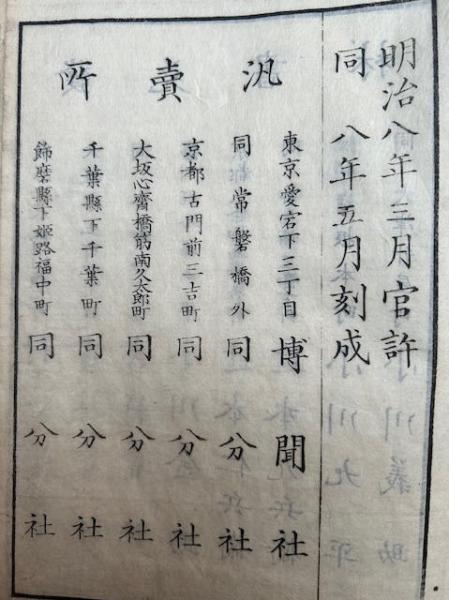 明治八年三月官許
同 八年五月刻成
汎賣所
東京愛宕下三丁目 博聞社
同常磐橋外 同分社
京都古門前三吉町 同分社
大坂心齋橋筋南久太郎町 同分社
千葉縣下千葉町 同分社
飾磨縣下姫路福中町 同分社